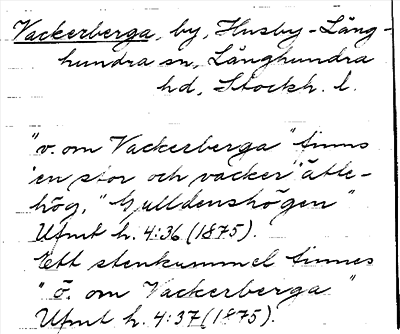 Vackerberga, by, Husby-Lång-
hundra sn, Långhundra
hd, Stockh. l.
"v. om Vackerberga" finns
"en stor och vacker" ätte-
hög, "Gulldenshögen"
Ufmt h. 4:36 (1875).
Ett stenkummel finnes
"ö. om Vackerberga"
Ufmt h. 4:37 (1875).